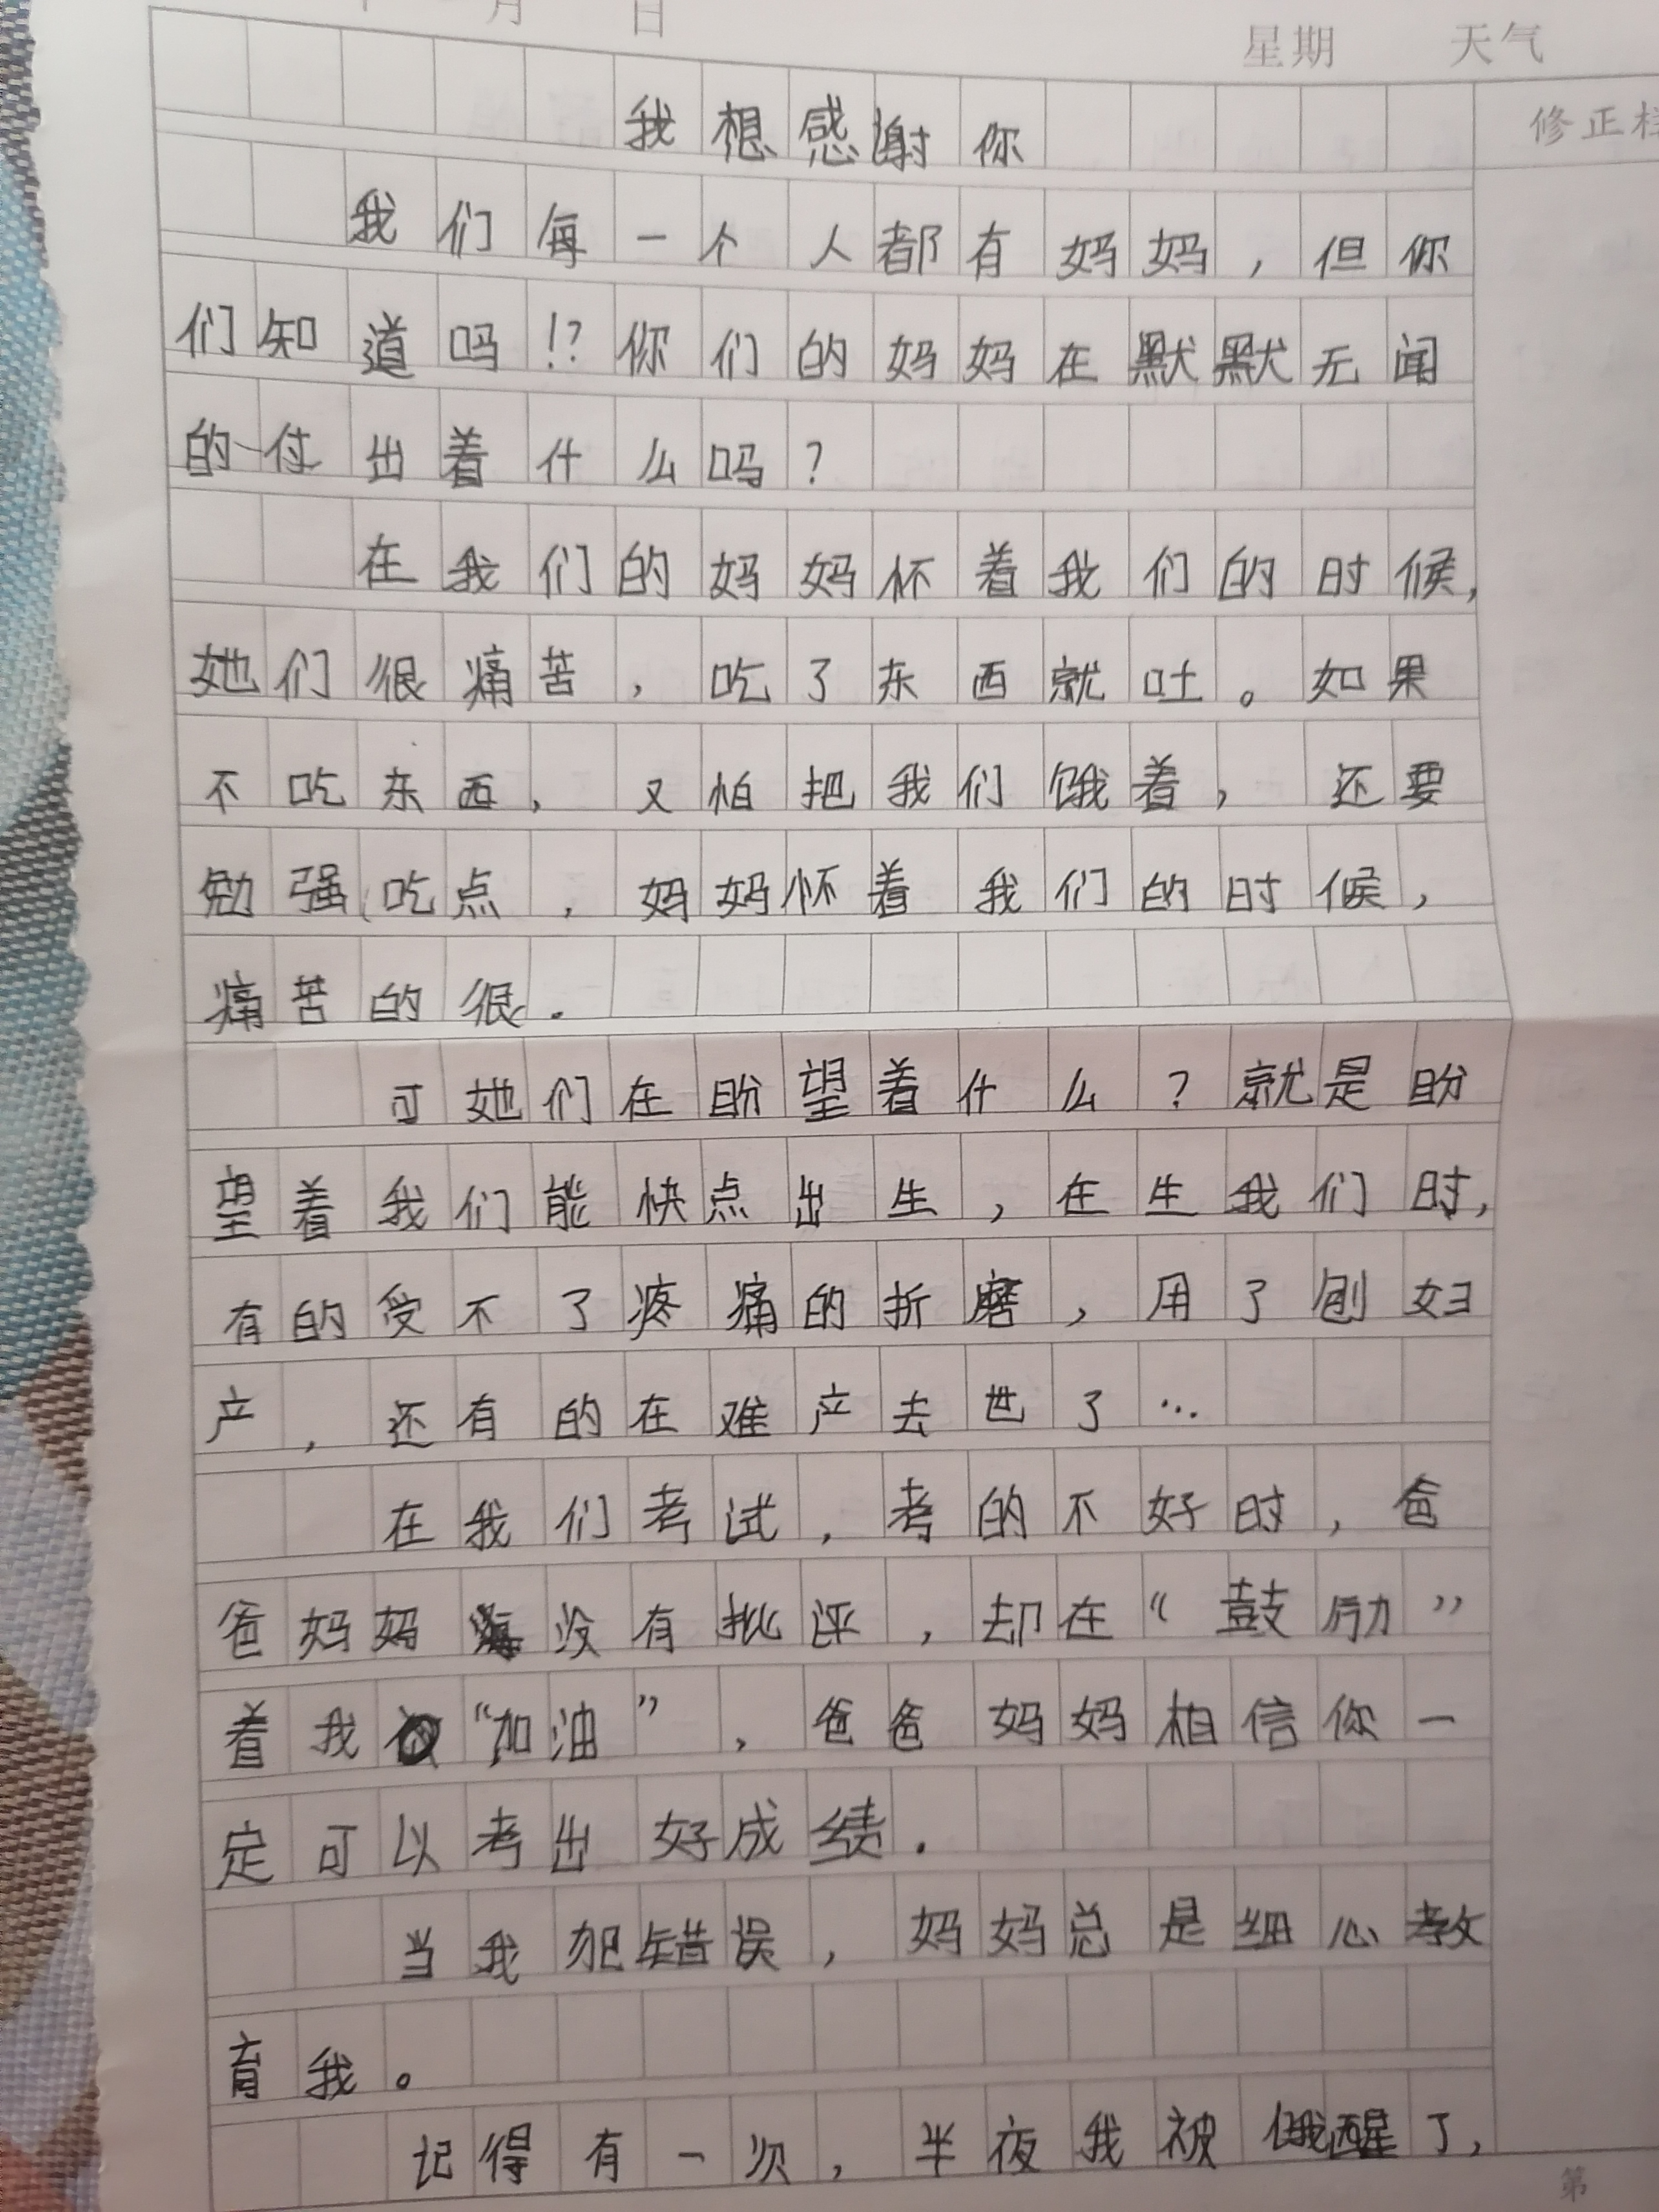 月 日 星期 天气
我想感谢你
修正栏
我们每一个人都有妈妈，但你
们知道吗！？你们的妈妈在默默无闻
的付出着什么吗？
在我们的妈妈怀着我们的时候，
她们很痛苦，吃了东西就吐。如果
不吃东西，又怕把我们饿着，还要
勉强吃点，妈妈怀着我们的时候，
痛苦的很．
可她们在盼望着什么？就是盼
望着我们能快点出生，在生我们时，
有的受不了疼痛的折磨，用了刨妇
产，还有的在难产去世了…
在我们考试，考的不好时，爸
爸妈妈没有批评，却在“鼓励”
着我“加油”，爸爸妈妈相信你一
定可以考出好成绩．
当我犯错误，妈妈总是细心教
育我。
记得有一次，半夜我被饿醒了，
第